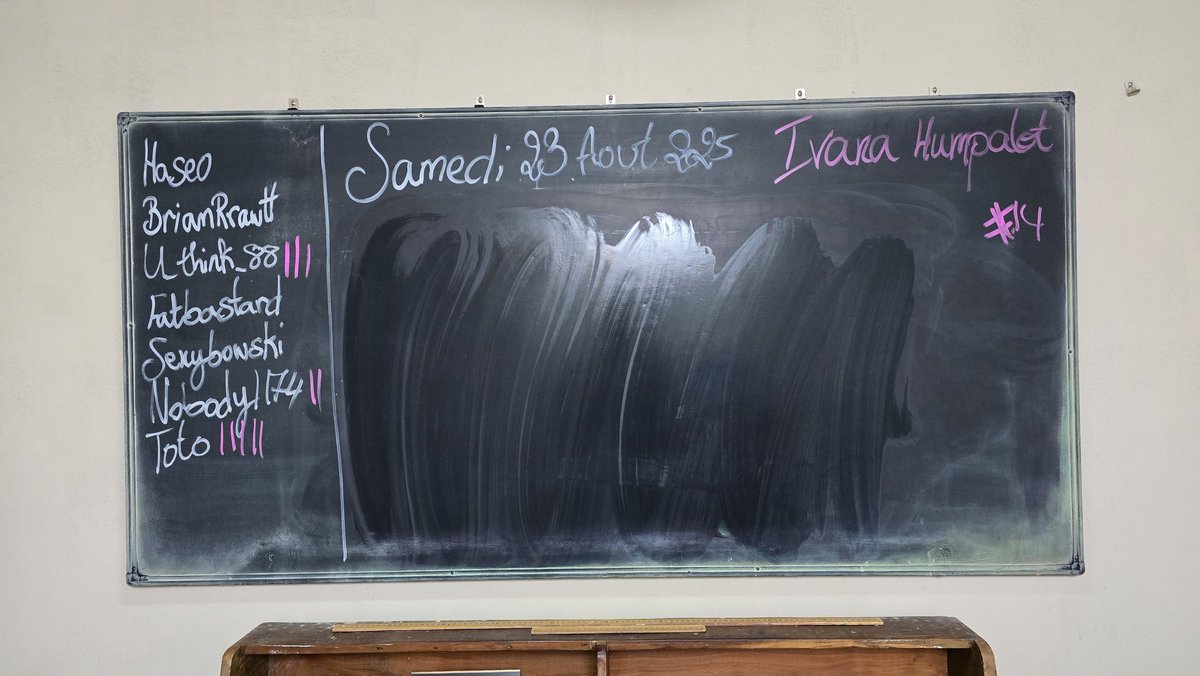 Haseo
BrianRrawtt
U_think_88 |||
Fatbastard
Sexybowski
Nobody1174 ||
Toto |||||
Samedi 23 Aout 2025
Ivana Humpalot
#14